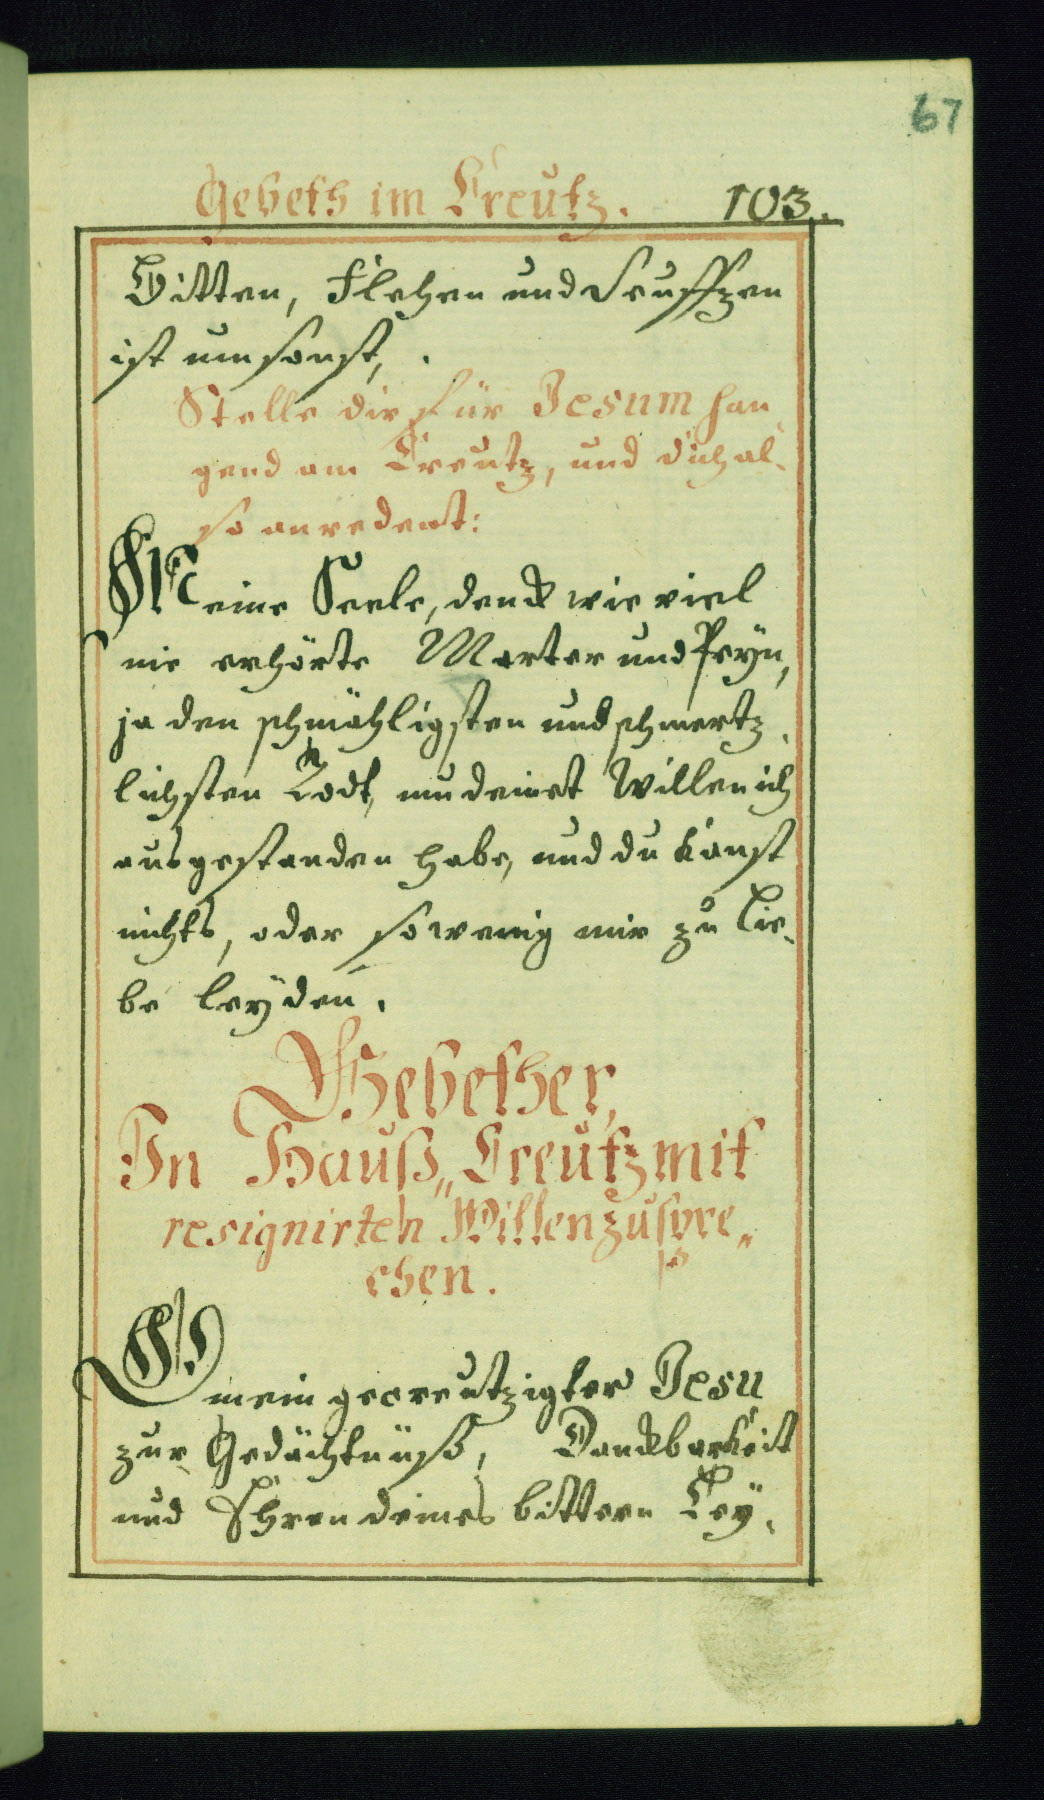 67
Gebeth im Creutz. 103.
Bitten, Flehen und Seuffzen
ist umsonst,.
Stelle dir für Jesum han
gend am Creutz, und dich al-
so anredent:
Meine Seele, denck wie viel
nie erhörte Marter und Peÿn,
ja den schmähligsten und schmertz-
lichsten Todt, um deinet Willen ich
ausgestanden habe, und du kanst
nichts, oder so wenig mir zu Lie-
be leÿden.
Gebether,
In Hauß„ Creutz mit
resignirten Willen zu spre„
chen.
O mein gecreutzigter Jesu
zur Gedächtnuß, Danckbarkeit
und Ehren deines bittern Leÿ-